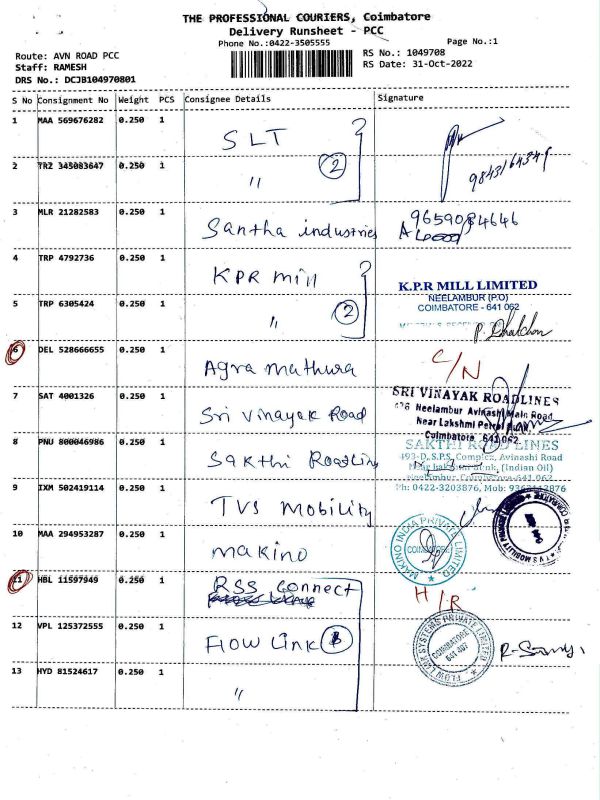 THE PROFESSIONAL COURIERS, Coimbatore
Delivery Runsheet - PCC
Phone No.:0422-3505555
Page No.:1
Route: AVN ROAD PCC
Staff: RAMESH
DRS No.: DCJB104970801
RS No.: 1049708
RS Date: 31-Oct-2022
S No Consignment No Weight PCS Consignee Details Signature
1 MAA 569676282 0.250 1 SLT
2 TRZ 345083647 0.250 1 " 2
9843164349
3 MLR 21282583 0.250 1 Santha industries 9659084646
4 TRP 4792736 0.250 1 KPR mill
K.P.R MILL LIMITED
NEELAMBUR (P.O)
COIMBATORE - 641 062
5 TRP 6305424 0.250 1 " 2
6 DEL 528666655 0.250 1 Agra mathura C/N
7 SAT 4001326 0.250 1 Sri Vinayak Road
SRI VINAYAK ROADLINES
Neelambur Avinashi Main Road
Near Lakshmi Petrol Bunk,
Coimbatore 641 062
8 PNU 800046986 0.250 1 Sakthi Roadlins
SAKTHI ROAD LINES
493-D, S.P.S. Complex, Avinashi Road
(Indian Oil)
Ph: 0422-3203876, Mob:
9 IXM 502419114 0.250 1 TVS Mobility
10 MAA 294953287 0.250 1 makino
MAKINO INDIA PRIVATE LIMITED
COIMBATORE
11 HBL 11597949 0.250 1 RSS connect H/R
12 VPL 125372555 0.250 1 Flow Link
FLOW LINK SYSTEMS PRIVATE LIMITED
COIMBATORE
641 407
13 HYD 81524617 0.250 1 "